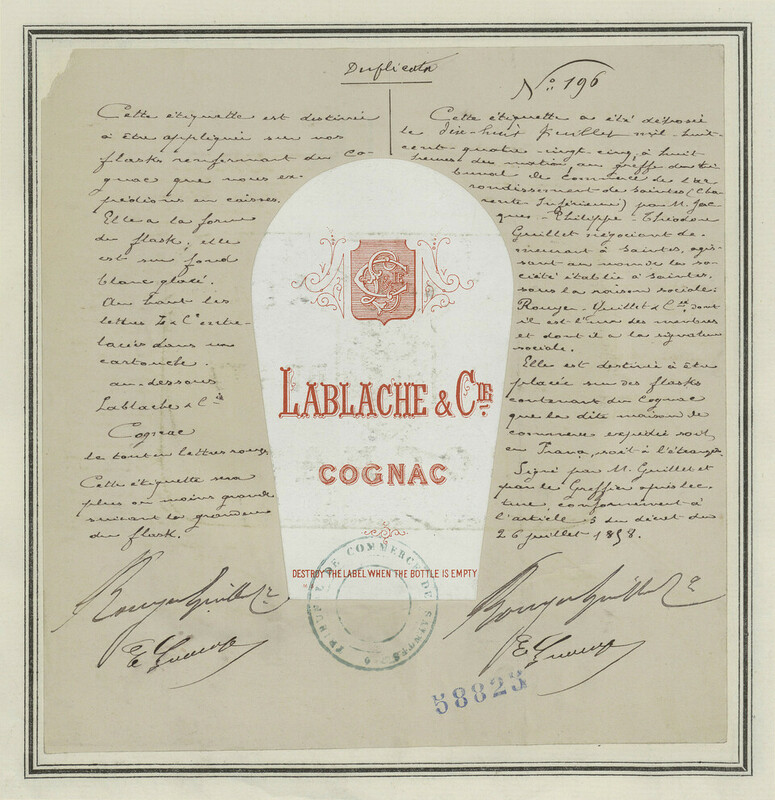 Duplicata
No 196
Cette étiquette est destinée
à être appliquée sur nos
flasks renfermant du Co-
gnac que nous ex-
pédions en caisses.
Elle a la forme
du flask; elle
est sur fond
blanc glacé.
Au haut les
lettres L & Cie entre-
lacées dans un
cartouche.
au-dessous
Lablache & Cie
Cognac
le tout en lettres rouges
Cette étiquette sera
plus ou moins grande
suivant la grandeur
du flask.
Rouyer Guillet & Cie
Cette étiquette a été déposée
le dix-huit Juillet mil-huit-
cent-quatre-vingt-cinq, à huit
heures du matin, au greffe du tri-
bunal de Commerce de l'ar
rondissement de Saintes (Cha-
rente Inférieure) par M. Jac-
ques-Philippe-Théodore
Guillet négociant de-
meurant à Saintes, agis-
sant au nom de la so-
ciété établie à Saintes,
sous la raison sociale:
Rouyer-Guillet & Cie, dont
il est l'un des membres
et dont il a la signature
sociale.
Elle est destinée à être
placée sur des flasks
contenant du Cognac
que la dite maison de
commerce expédie soit
en France, soit à l'étranger.
Signé par M. Guillet et
par le Greffier après lec-
ture, conformément à
l'article 3 du décret du
26 juillet 1858.
Rouyer Guillet & Cie
LABLACHE & CIE
COGNAC
DESTROY THE LABEL WHEN THE BOTTLE IS EMPTY
TRIBUNAL DE COMMERCE DE SAINTES
58823